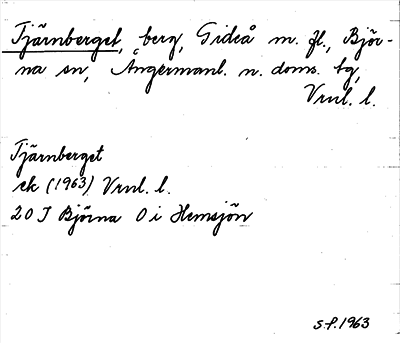 Tjärnberget, berg, Gideå m. fl., Björ-
na sn, Ångermanl. n. doms. tg,
Vrnl. l.
Tjärnberget
ek (1963) Vrnl. l.
20 J Björna O i Hemsjön
S.P. 1963